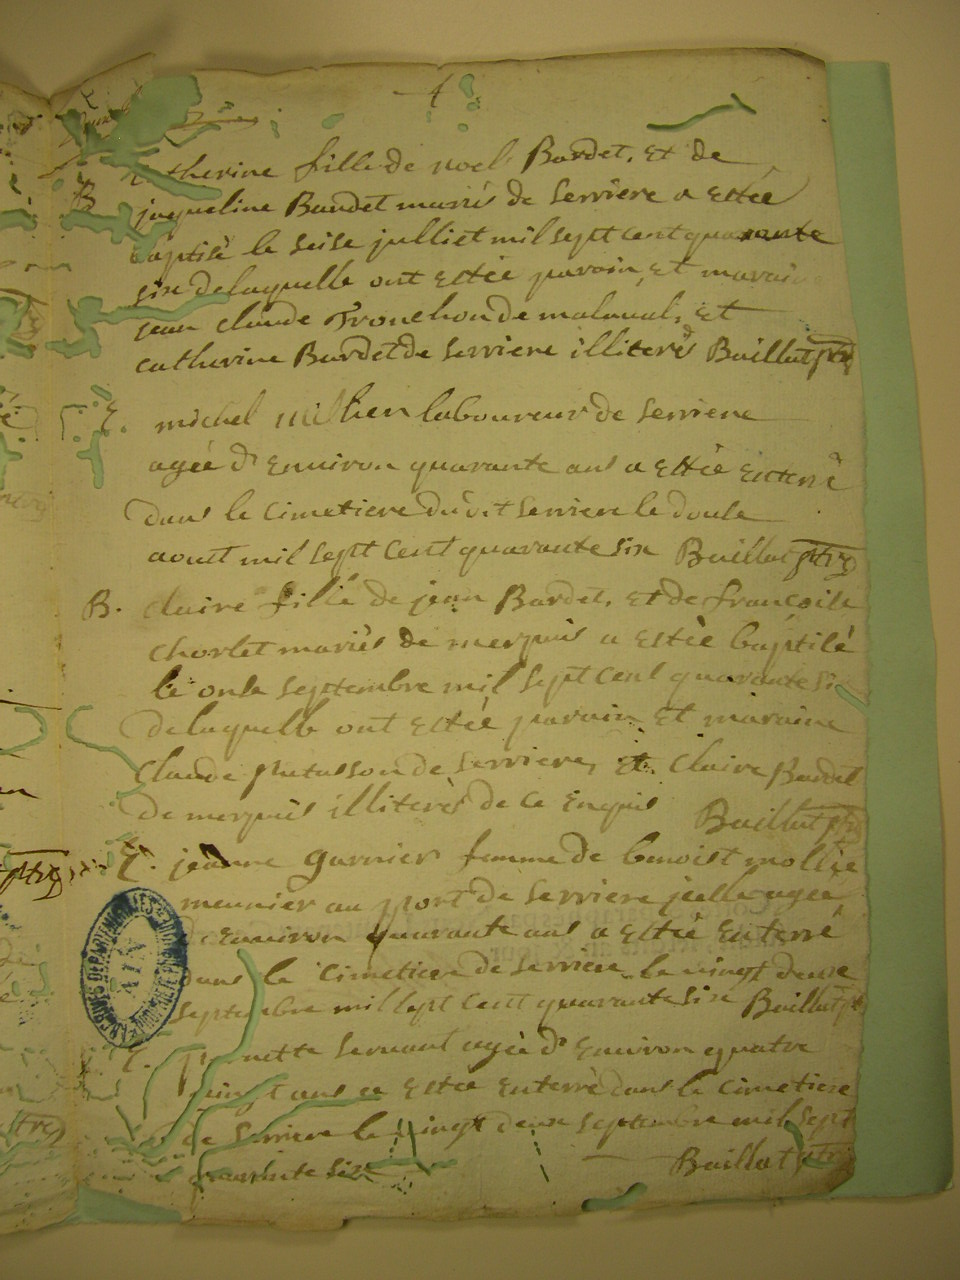 4
B
therine fille de noel Bardet, et de
jaqueline Baudet mariés de Serriere a estée
baptisé le seise julliet mil sept cent quarante
six de laquelle ont estée parain, et maraine
jean claude Tronchon de malaval, et
catherine Bardet de Serriere illiterés Baillat ptre
E. michel millien laboureur de Serriere
agée d'Environ quarante ans a estée enterré
dans le Cimetiere dudit Serriere le douse
aoust mil sept Cent quarante six Baillat ptre
B. Claire fille de jean Bardet, et de francoise
Chorlet mariés de merpuis a estée baptisé
le onse septembre mil sept Cent quarante six
de laquelle ont estée parain et maraine
Claude putusson de Serriere, et Claire Bardet
de merpuis illiterés de ce Enquis Baillat ptre
E. jeanne Garnier femme de benoist mollie
meunier au port de Serriere jcelle agée
d'Environ quarante ans a estée Enterré
dans le Cimetiere de Serriere le vingt deuxe
septembre mil sept Cent quarante six Baillat ptre
E. nette Servant agée d'Environ quatre
vingt ans a Estée Enterré dans le Cimetiere
de Serriere le vingt deux septembre mil sept
quarante six Baillat ptre
ARCHIVES DEPARTEMENTALES
AIN